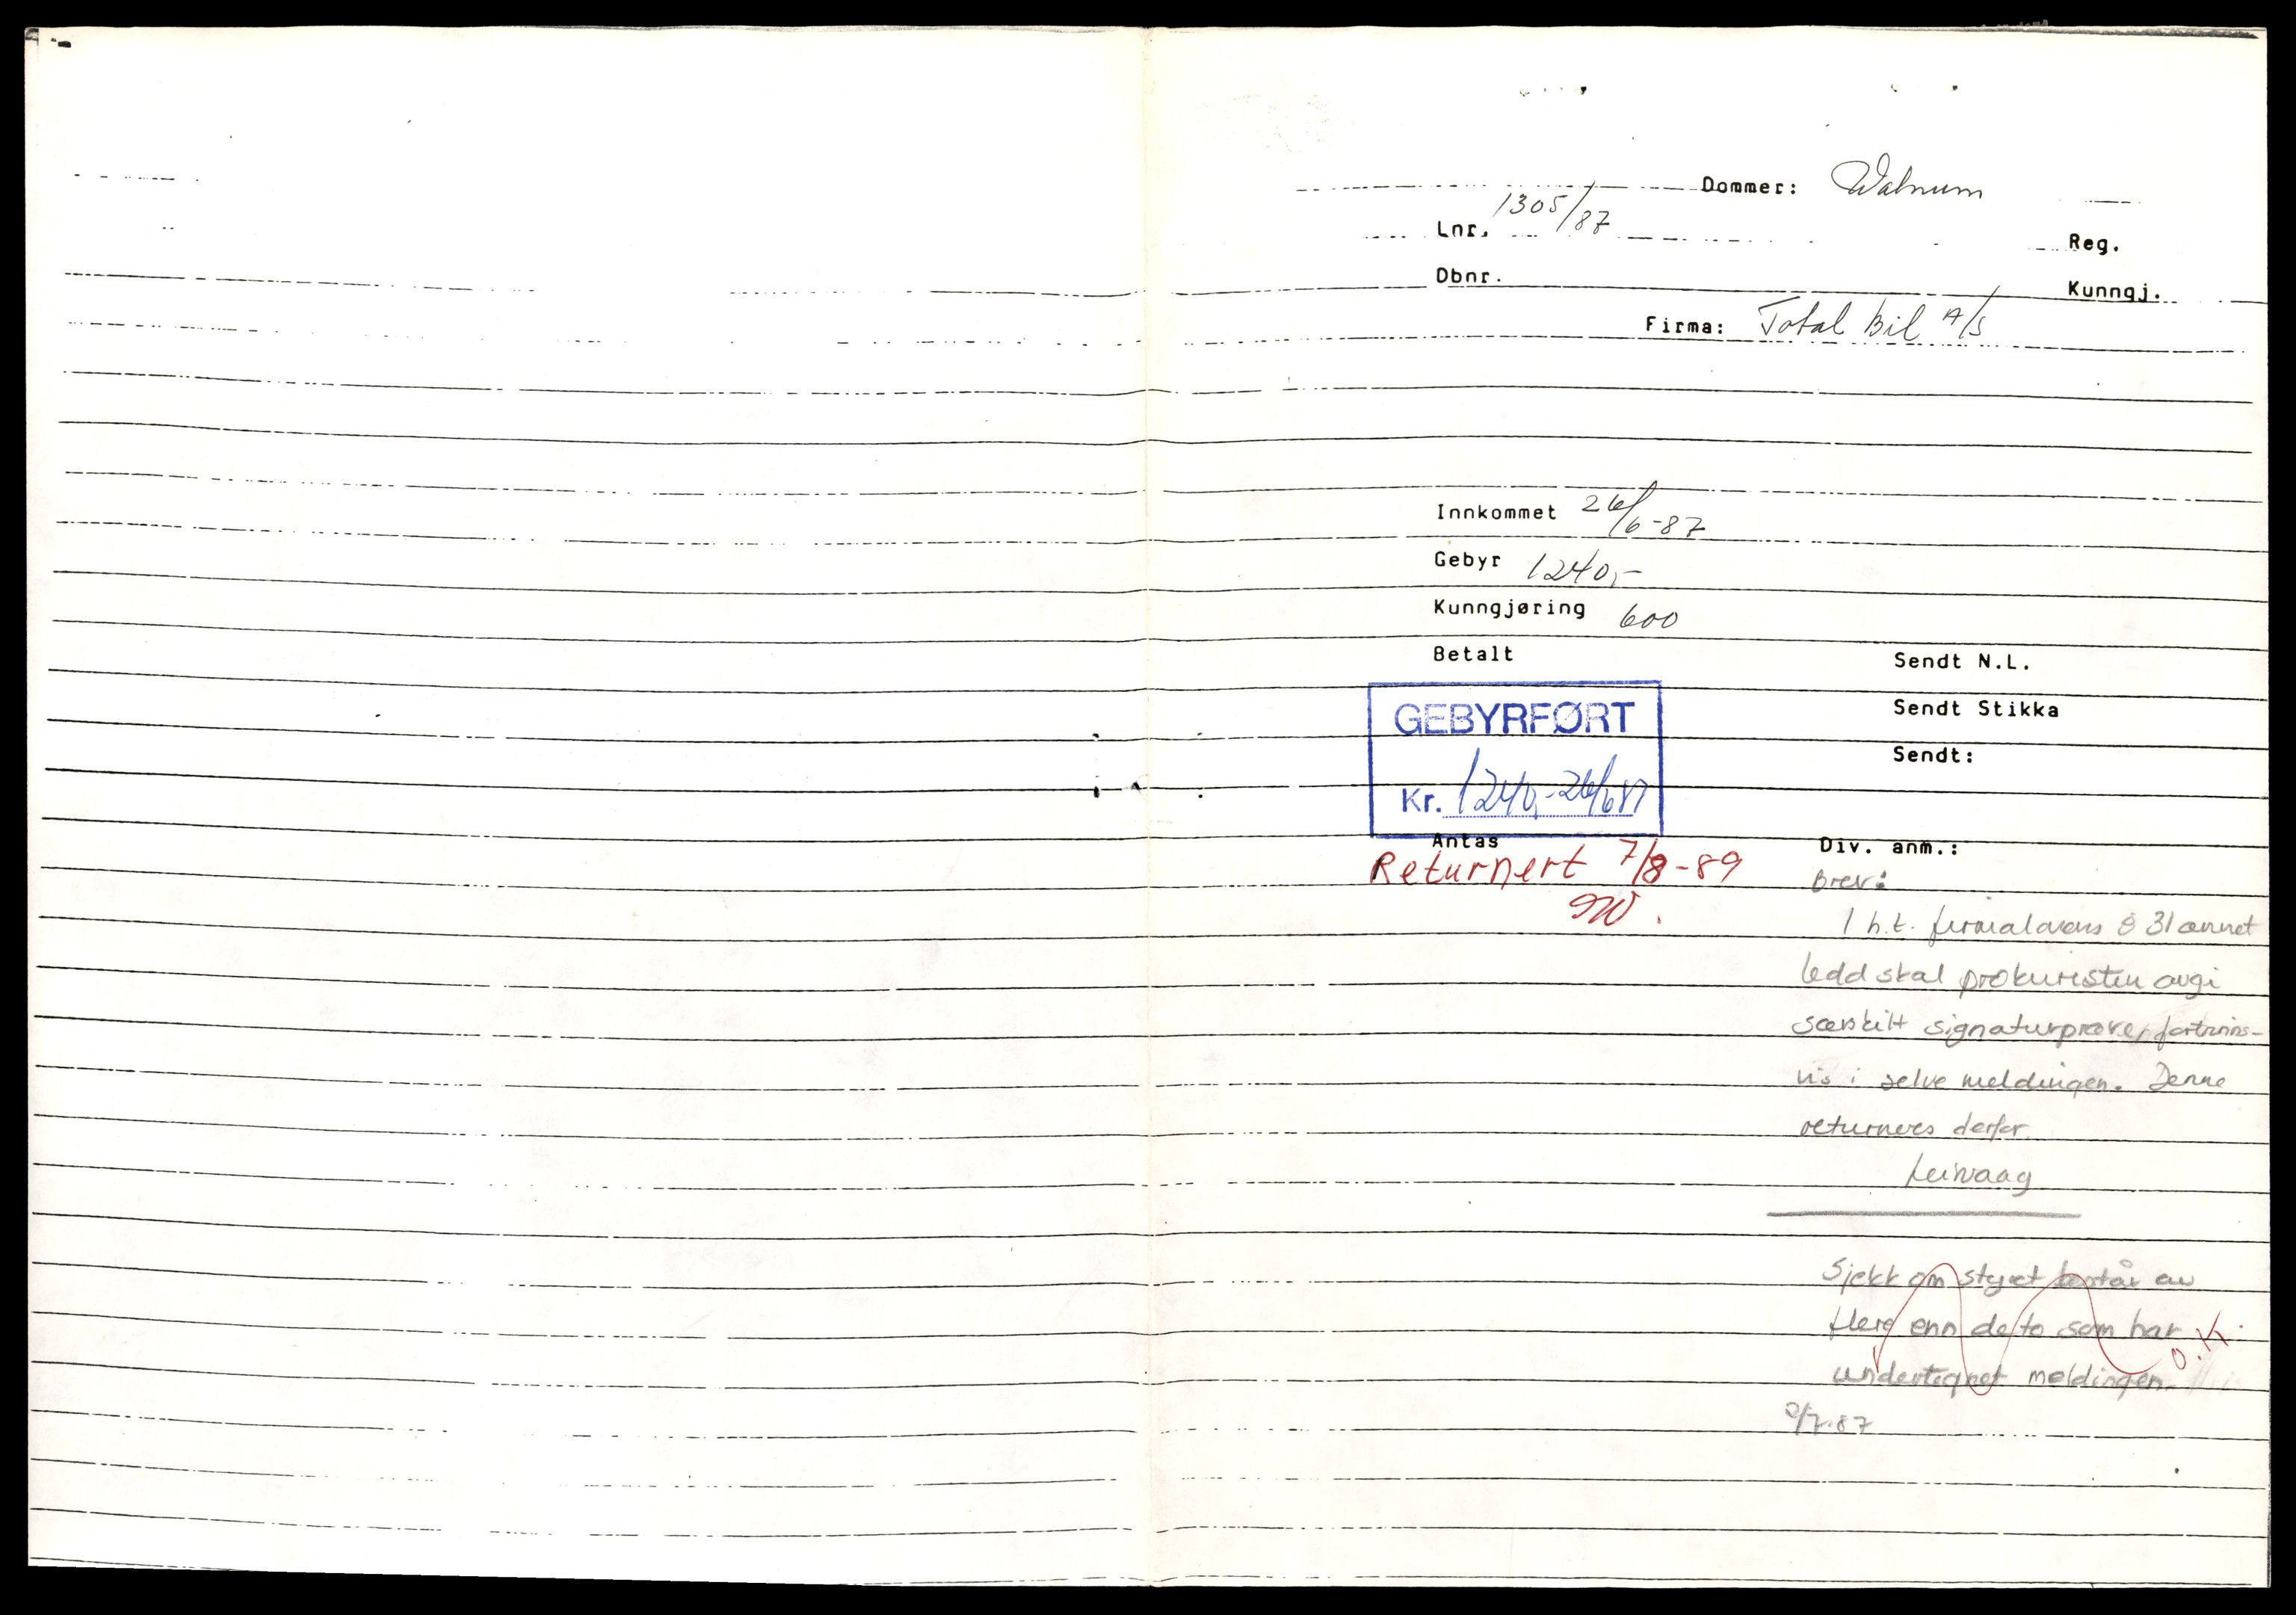 Dommer: Walnum
Lnr. 1305/87
Reg.
Dbnr.
Kunngj.
Firma: Total Bil A/S
Innkommet 26/6-87
Gebyr 1240,-
Kunngjøring 600
Betalt
Sendt N.L.
GEBYRFØRT
Sendt Stikka
Sendt:
Kr. 1240,- 26/6 87
Antas
Div. anm.:
Returnert 7/8-89
Brev:
I h.t. firmalovens § 31 annet
ledd skal prokuristen avgi
særskilt signaturprøve, fortrinns-
vis i selve meldingen. Denne
returneres derfor.
Leirvaag
Sjekk om styret består av
flere enn de to som har
undertegnet meldingen.
O.K.
2/7-87